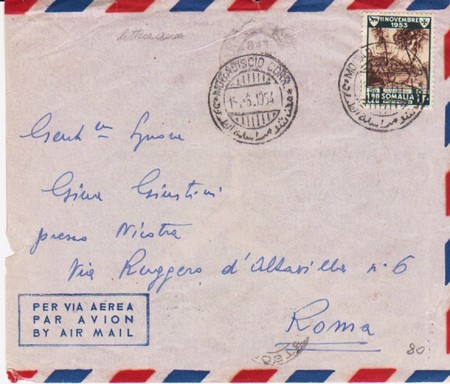 lettera aerea
11 NOVEMBRE
1953
SOMALIA
MOGADISCIO CORR.
6.1954
MOGADISCIO
Gent.ma Signora
Gina Giustini
presso Nicotra
Via Ruggero d'Altavilla n. 6
Roma
PER VIA AEREA
PAR AVION
BY AIR MAIL
80